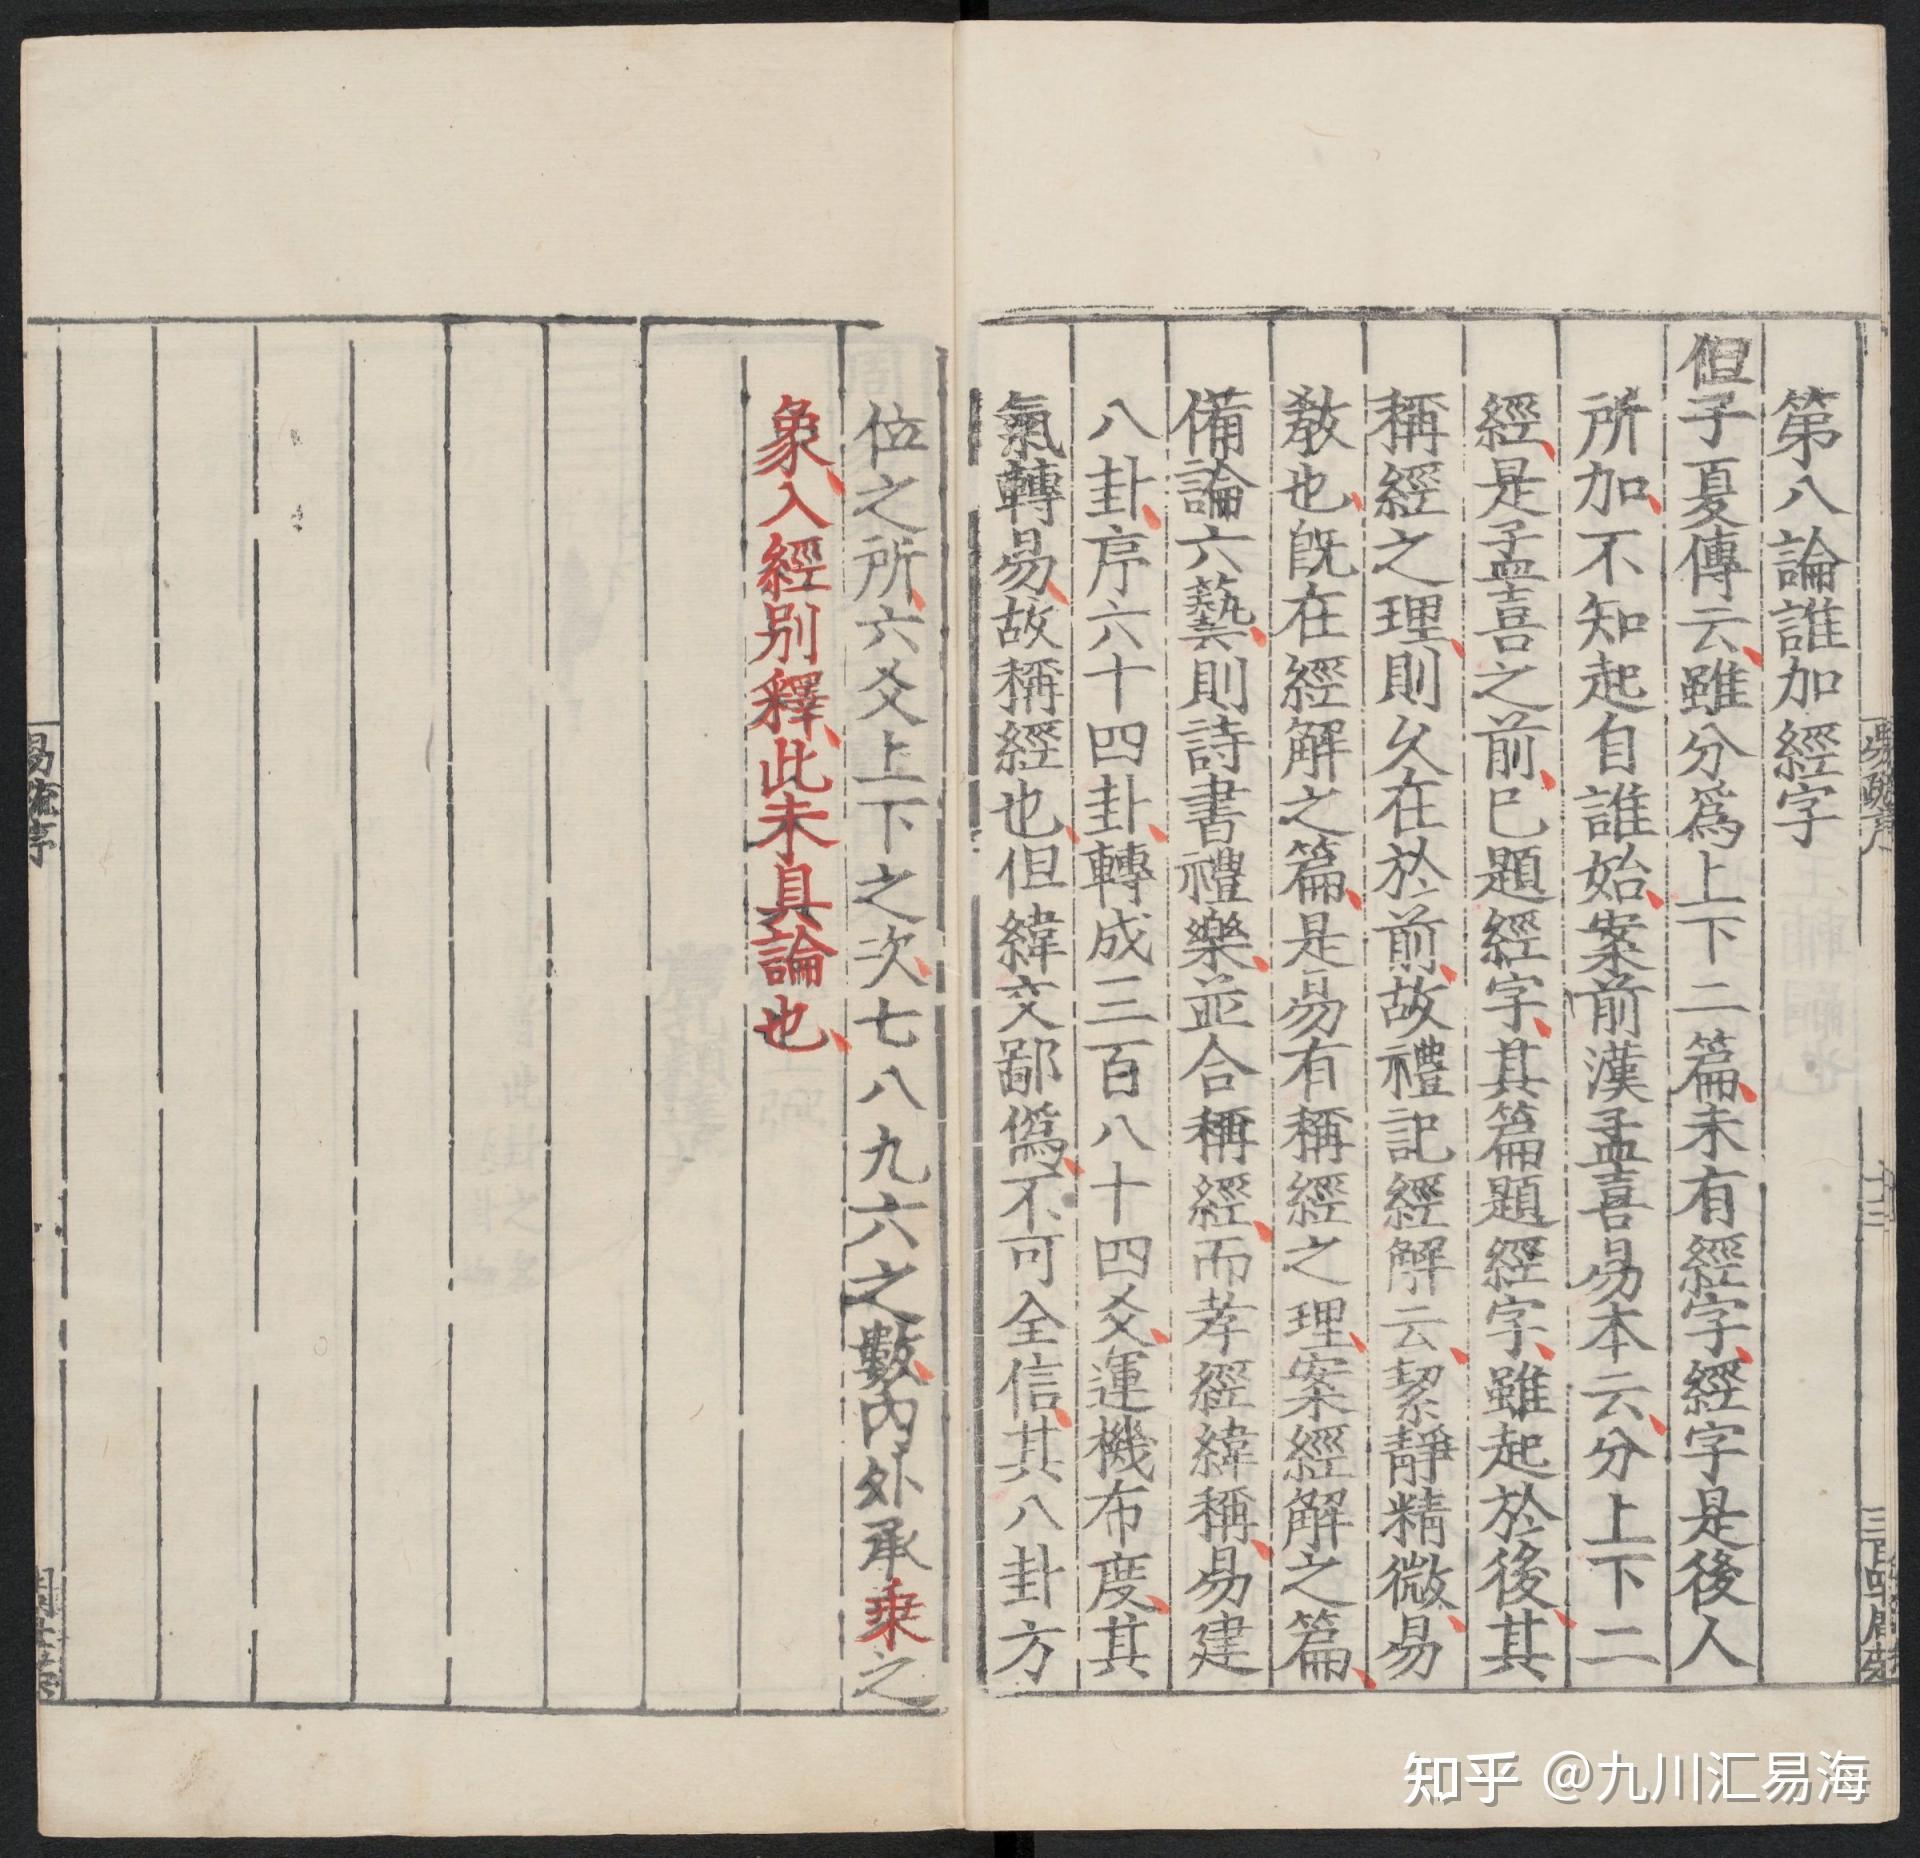 第八論誰加經字
但子夏傳云雖分爲上下二篇未有經字經字是後人
所加不知起自誰始案前漢孟喜易本云分上下二
經是孟喜之前已題經字其篇題經字雖起於後其
稱經之理則久在於前故禮記經解云絜靜精微易
教也旣在經解之篇是易有稱經之理案經解之篇
備論六藝則詩書禮樂並合稱經而孝經緯稱易建
八卦序六十四卦轉成三百八十四爻運機布度其
氣轉易故稱經也但緯文鄙僞不可全信其八卦方
位之所六爻上下之次七八九六之數內外承乘之
象入經别釋此未具論也
易疏序
知乎 @九川汇易海